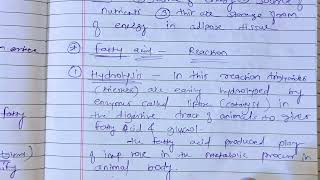 nutrients ③ this are storage form
of energy in adipose tissue
* Fatty acid – Reaction
① Hydrolysis - In this reaction triglycerides
(triester) are easily hydrolysed by
enzymes called lipase (catalyst) in
the digestive tract of animals to gives
fatty acid & glycerol.
the fatty acid produced play
imp role in the metabolic process in
animal body.
fatty